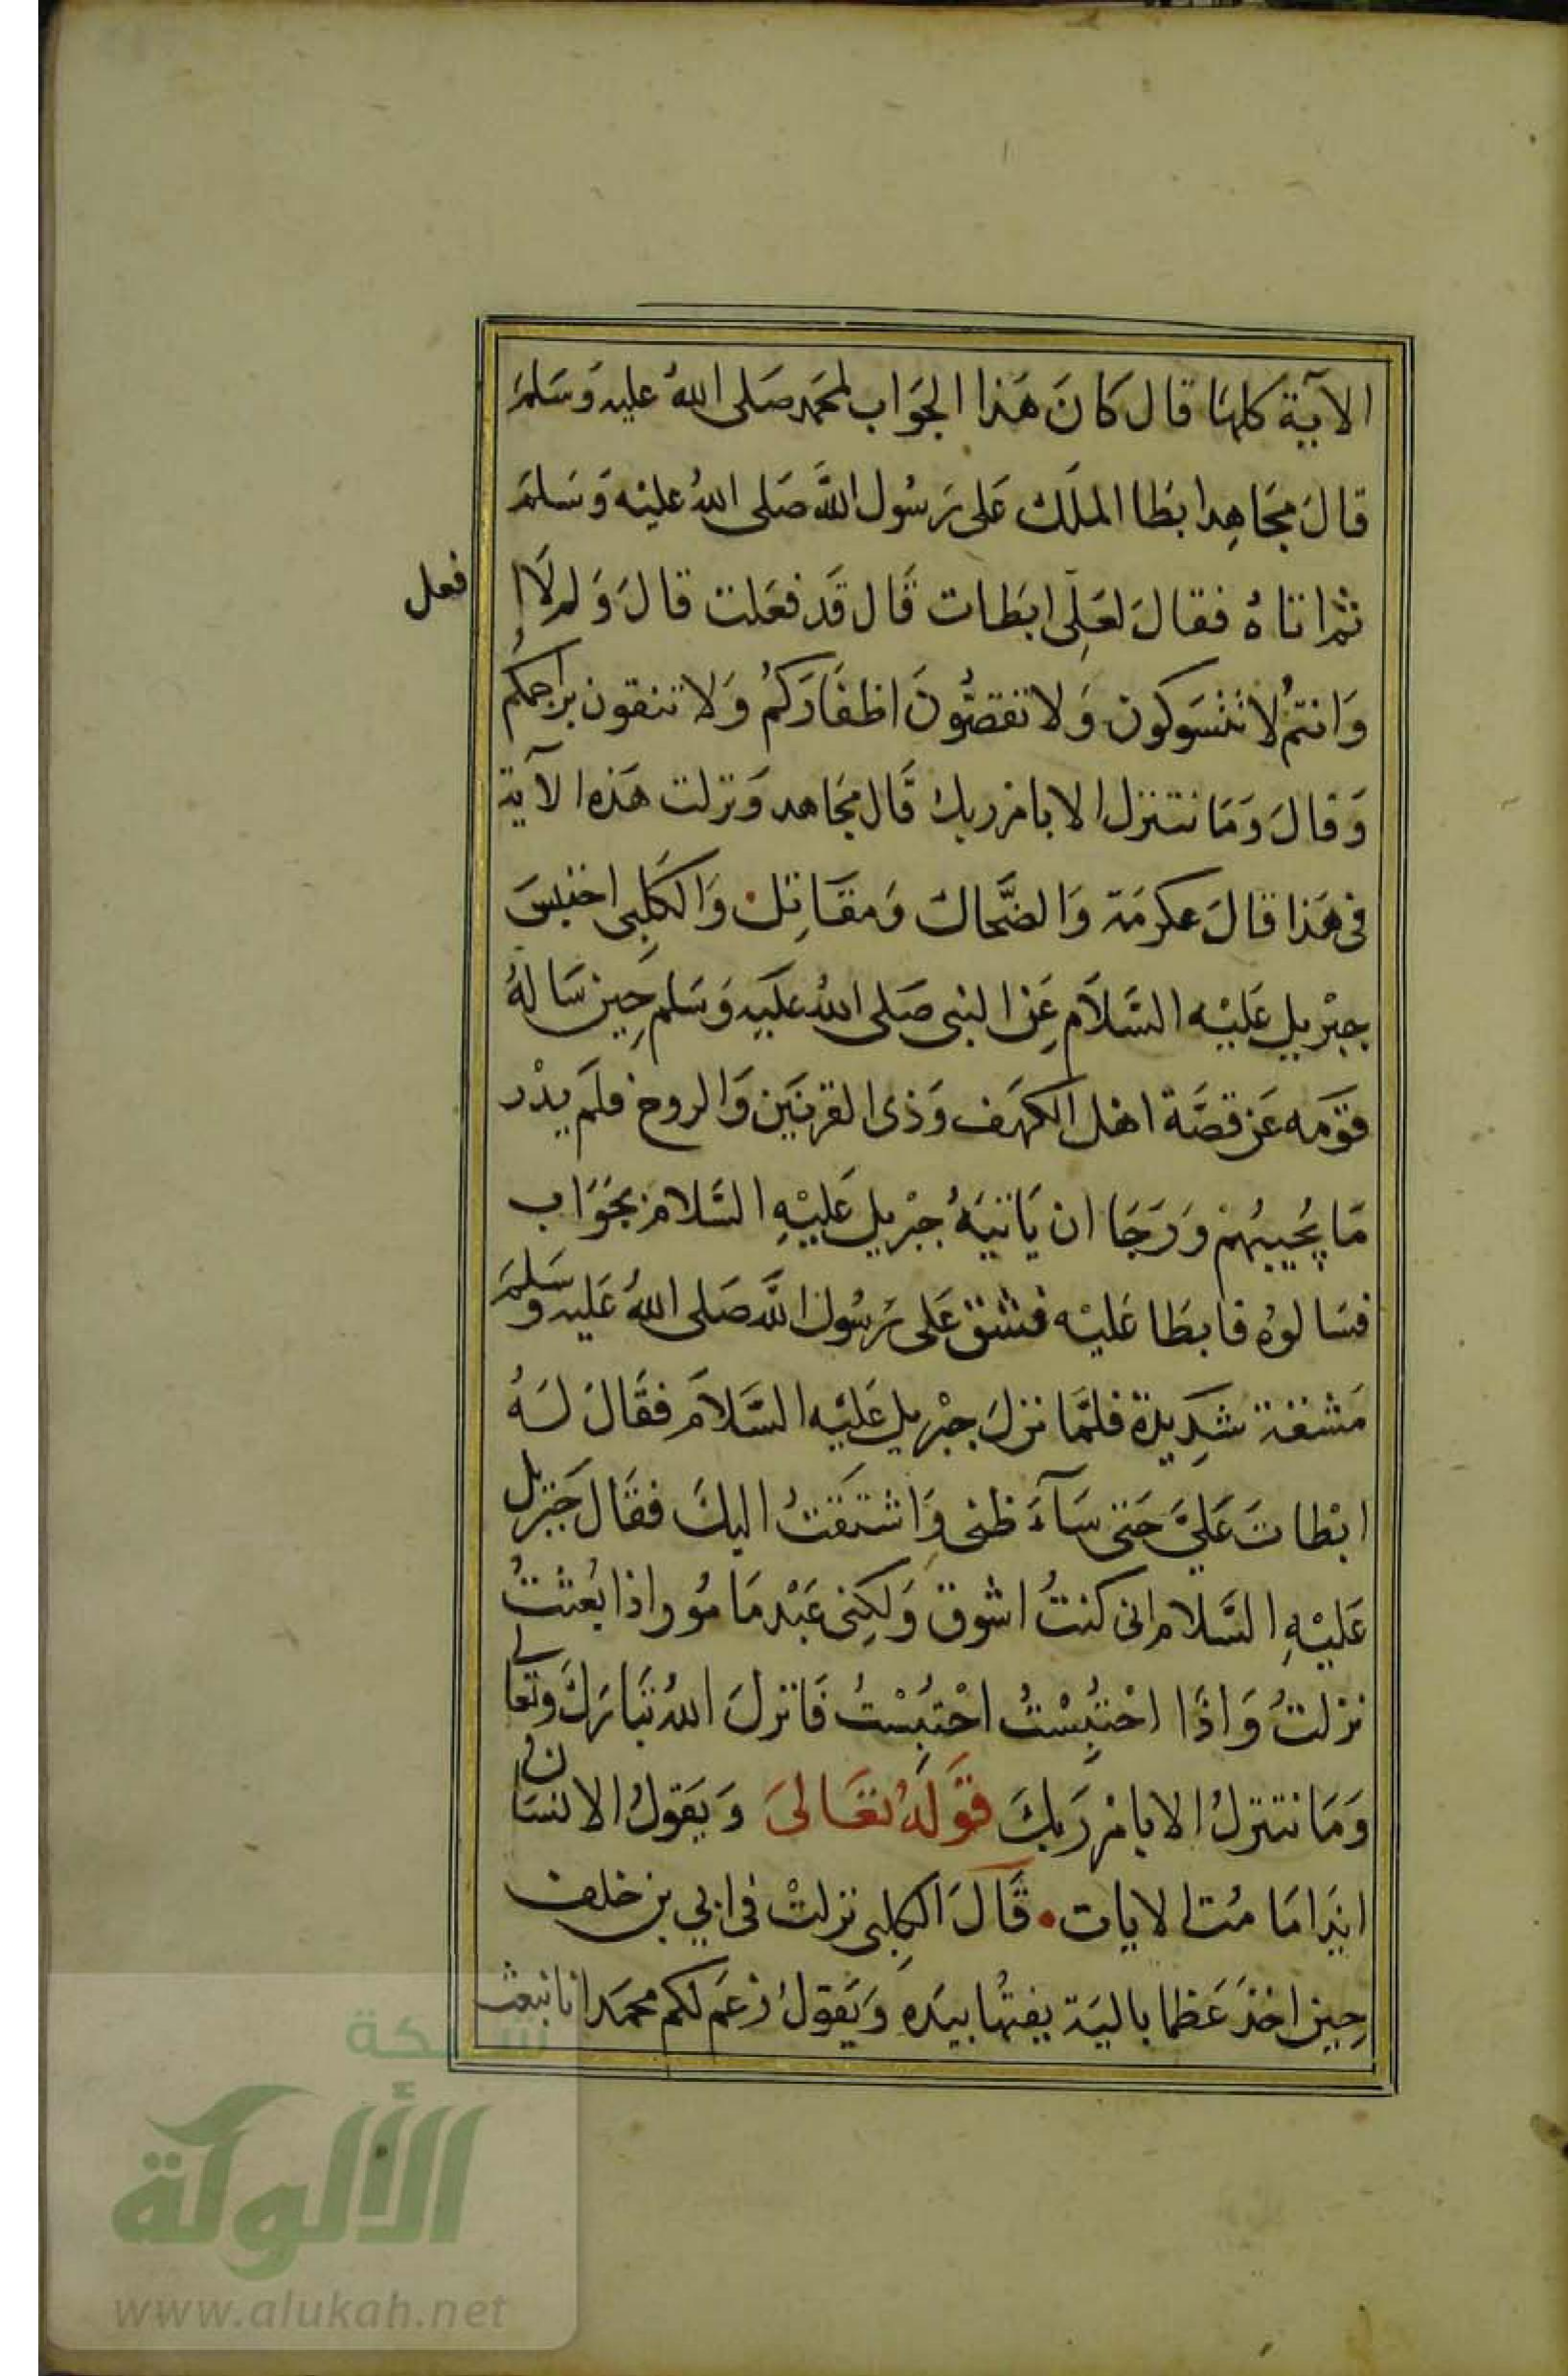 الآية كلها قال كَانَ هَذا الجَوَاب لمحمد صَلى اللهُ عليه وَسَلمَ
قالَ مجَاهِد ابطَا الملَك عَلى رَسُول اللَّه صَلى اللهُ عليْه وَسَلمَ
ثم اتاهُ فقالَ لعَلِّى ابطَات قَال قَد فعَلت قالَ وَلم لَا ا
فعل
وَانتمُ لا تتسَوكون وَلا تقصُّونَ اظفَاركمُ وَلا تنقون براجمكُم
وَقالَ وَمَا نتنزل الا بامر ربك قَال مجَاهد وَنزلت هَذه الآية
فى هَذا قالَ عكرمَة وَالضَّحاك وَمقَاتِل وَالكَلِبى احتبسَ
جبْريل عَليْه السَّلاَم عَن النبى صَلى اللهُ عَليه وَسَلم حِين سَالهُ
قوْمَه عَن قصَّة اهْل الكهَف وَذى القرنَيَن وَالروح فلَم يدْر
مَا يُجيبُهمْ وَرَجَا ان يَاتيَهُ جبْريل عَليْهِ السَّلام بجَوَاب
فسَالوهُ فابطَا عَليْه فشق عَلى رَسُول اللَّه صَلى اللهُ عَليه وَسَلمَ
مَشقة شَدِيدَة فلمَّا نزلَ جبْريل عَليْه السَّلاَم فقَالَ لهُ
ابْطاتَ عَليَّ حَتى سَآءَ ظنى وَاشتَقتُ اليكَ فقَالَ جَبريل
عَليْهِ السَّلام انى كنتُ اشوق وَلكِنى عَبْد مَامُور اذا بُعثتُ
نزلتُ وَاذَا احْتُبِسْتُ احْتبُسْتُ فَانزلَ اللهُ تبَارَكَ وتعَالى
وَمَا نتنزلُ الا بامْر رَبكَ قوْلهُ تعَالىَ وَيَقولُ الانسَان
ايذَا مَا مُت الايات قَالَ الكِلبى نزلتْ فى ابي بن خلف
حِين اخذَ عَظما باليَة يفتهُا بيَدِه وَيَقولُ زعَم لكم محمَد انا نبعث
شبكة
الألوكة
www.alukah.net